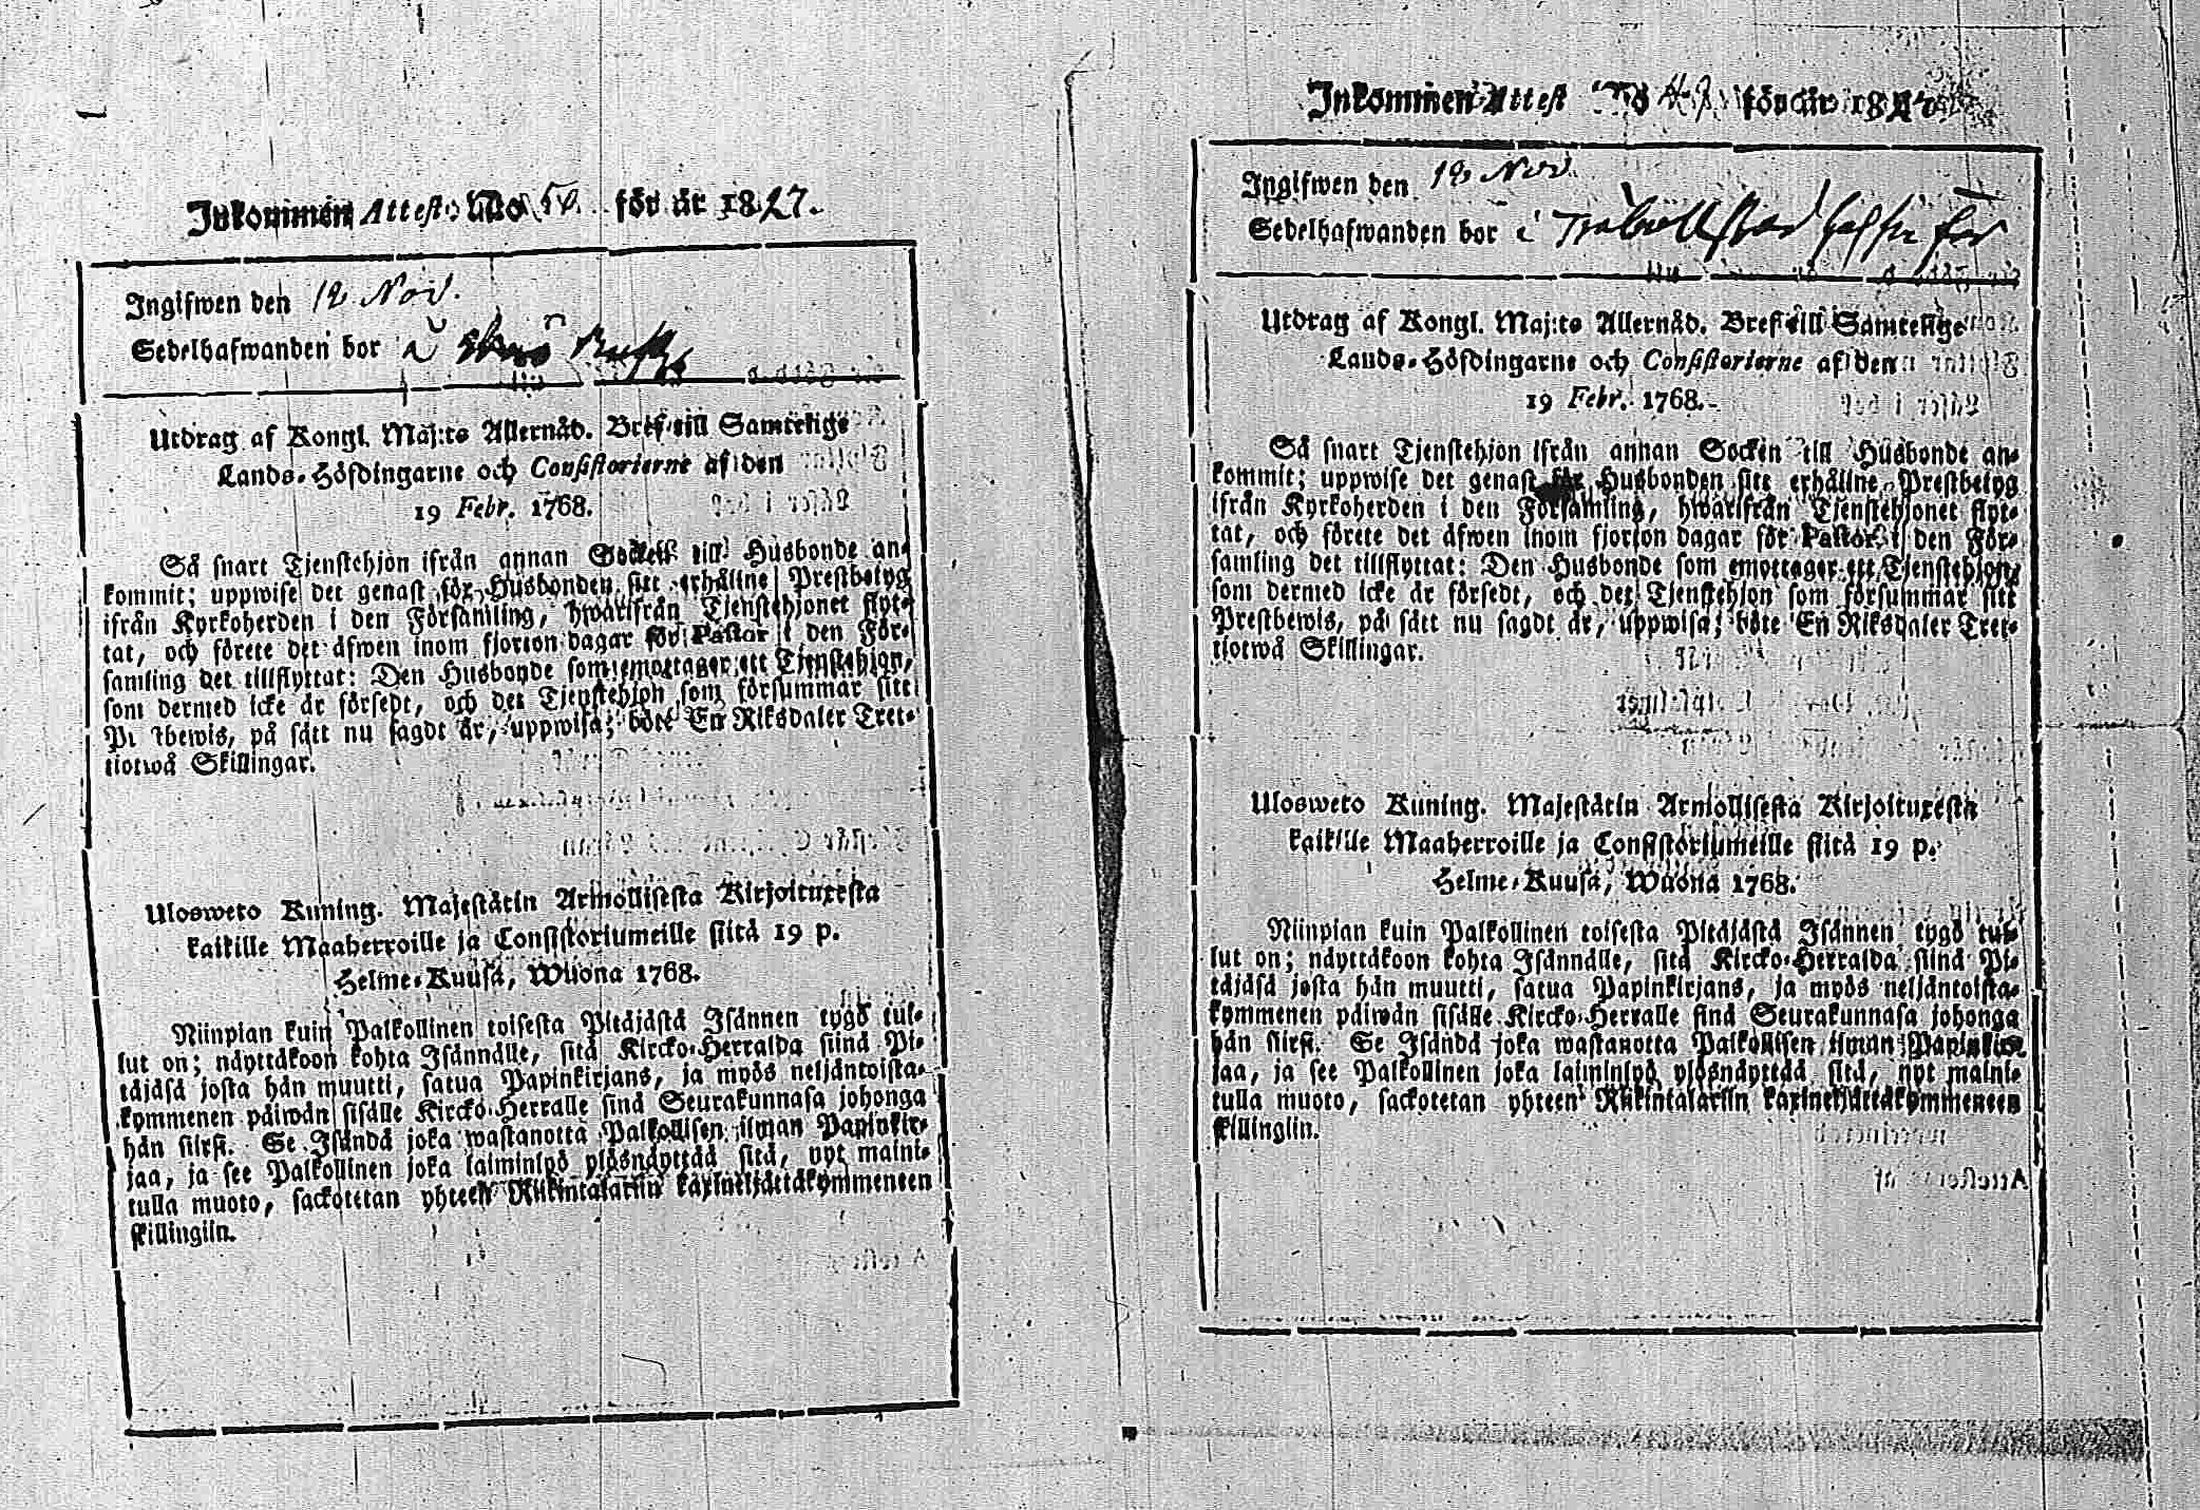 Inkommen Attest No 50 för år 1827.
Ingifwen den 12 Nov.
Sedelhafwanden bor å
Utdrag af Kongl. Maj:ts Allernåd. Bref till Samtelige
Lands-Höfdingarne och Consistorierne af den
19 Febr. 1768.
Så snart Tjenstehjon ifrån annan Socken till Husbonde an-
kommit; uppwise det genast för Husbonden sitt erhållne Prestbetyg
ifrån Kyrkoherden i den Församling, hwarifrån Tjenstehjonet flyt-
tat, och förete det äfwen inom fjorton dagar för Pastor i den För-
samling det tillflyttat: Den Husbonde som emottager ett Tjenstehjon,
som dermed icke är försedt, och det Tjenstehjon som försummar sitt
Prestbewis, på sätt nu sagdt är, uppwisa; böte En Riksdaler Tret-
tiotwå Skillingar.
Ulosweto Kuning. Majestätin Armollisesta Kirjoituxesta
kaikille Maaherroille ja Consistoriumeille siitä 19 p.
Helme-Kuusa, Wuona 1768.
Niinpian kuin Palkollinen toisesta Pitäjästä Isännen tygö tul-
lut on; näyttäkoon kohta Isännälle, sitä Kircko-Herralda siinä Pi-
täjäsä josta hän muutti, satua Papinkirjans, ja myös neljäntoista-
kymmenen päiwän sisälle Kircko-Herralle sinä Seurakunnasa johonga
hän siirsi. Se Isändä joka wastanotta Palkollisen ilman Papinkir-
jaa, ja see Palkollinen joka laiminlyö ylösnäyttää sitä, nyt maini-
tulla muoto, sackotetan yhteen Riikintalariin kaxineljättäkymmeneen
skillingiin.
Inkommen Attest No för år 18
Ingifwen den 12 Nov.
Sedelhafwanden bor å
Utdrag af Kongl. Maj:ts Allernåd. Bref till Samtelige
Lands-Höfdingarne och Consistorierne af den
19 Febr. 1768.
Så snart Tjenstehjon ifrån annan Socken till Husbonde an-
kommit; uppwise det genast för Husbonden sitt erhållne Prestbetyg
ifrån Kyrkoherden i den Församling, hwarifrån Tjenstehjonet flyt-
tat, och förete det äfwen inom fjorton dagar för Pastor i den För-
samling det tillflyttat: Den Husbonde som emottager ett Tjenstehjon,
som dermed icke är försedt, och det Tjenstehjon som försummar sitt
Prestbewis, på sätt nu sagdt är, uppwisa; böte En Riksdaler Tret-
tiotwå Skillingar.
Ulosweto Kuning. Majestätin Armollisesta Kirjoituxesta
kaikille Maaherroille ja Consistoriumeille siitä 19 p.
Helme-Kuusa, Wuona 1768.
Niinpian kuin Palkollinen toisesta Pitäjästä Isännen tygö tul-
lut on; näyttäkoon kohta Isännälle, sitä Kircko-Herralda siinä Pi-
täjäsä josta hän muutti, satua Papinkirjans, ja myös neljäntoista-
kymmenen päiwän sisälle Kircko-Herralle sinä Seurakunnasa johonga
hän siirsi. Se Isändä joka wastanotta Palkollisen ilman Papinkir-
jaa, ja see Palkollinen joka laiminlyö ylösnäyttää sitä, nyt maini-
tulla muoto, sackotetan yhteen Riikintalariin kaxineljättäkymmeneen
skillingiin.